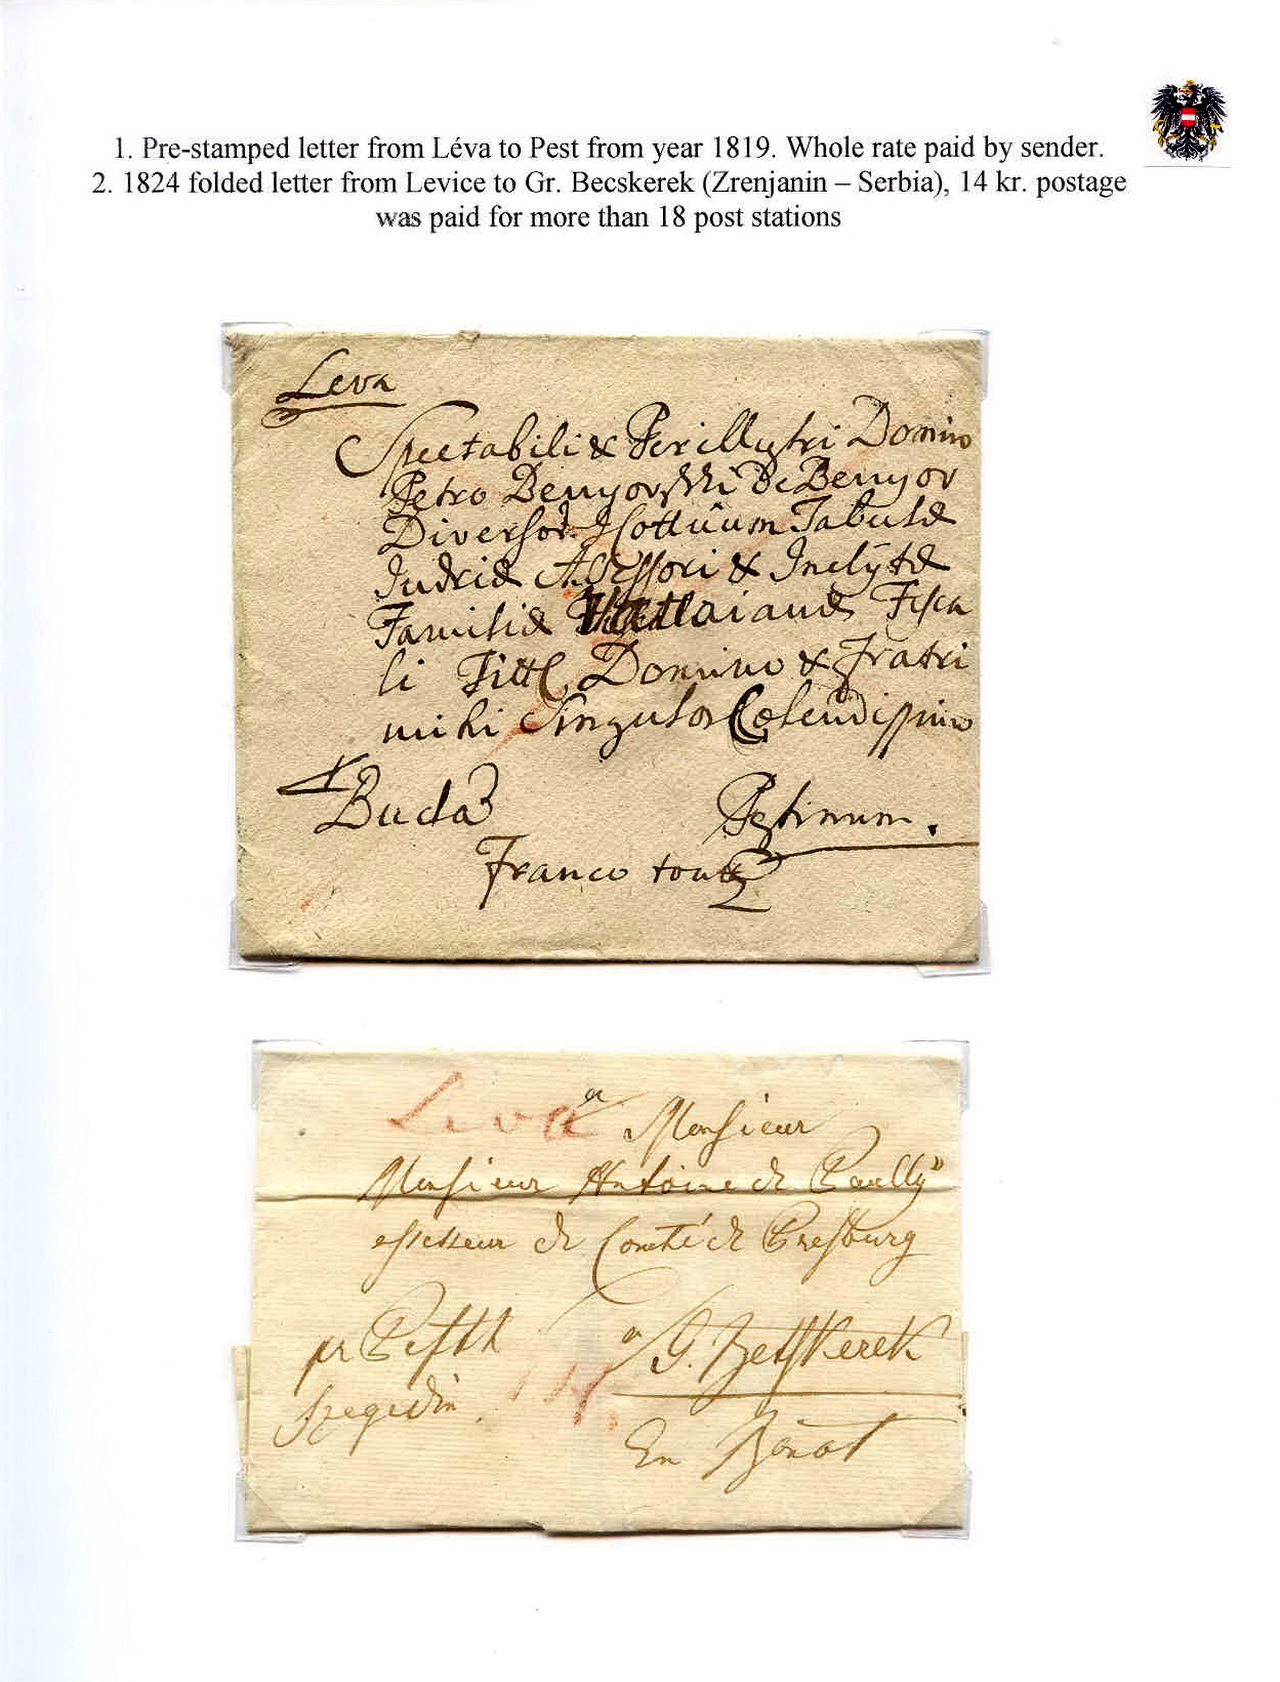 1. Pre-stamped letter from Léva to Pest from year 1819. Whole rate paid by sender.
2. 1824 folded letter from Levice to Gr. Becskerek (Zrenjanin – Serbia), 14 kr. postage
was paid for more than 18 post stations
Leva
Spectabili & Perillustri Domino
Petro Benyovszki de Benyov
Diversor. Cottuum Tabulæ
Judriæ Assessori & Inclÿtæ
Familiæ Fisca
li Titt Domino & Fratri
mihi Singulos Colendissimo
Buda Pestinum.
Franco tout
Leva
a Monsieur
Monsieur Antoine de Paully
assesseur de Comté de Presburg
pr Pesth a G. Betskerek
Szegedin.
En Banat